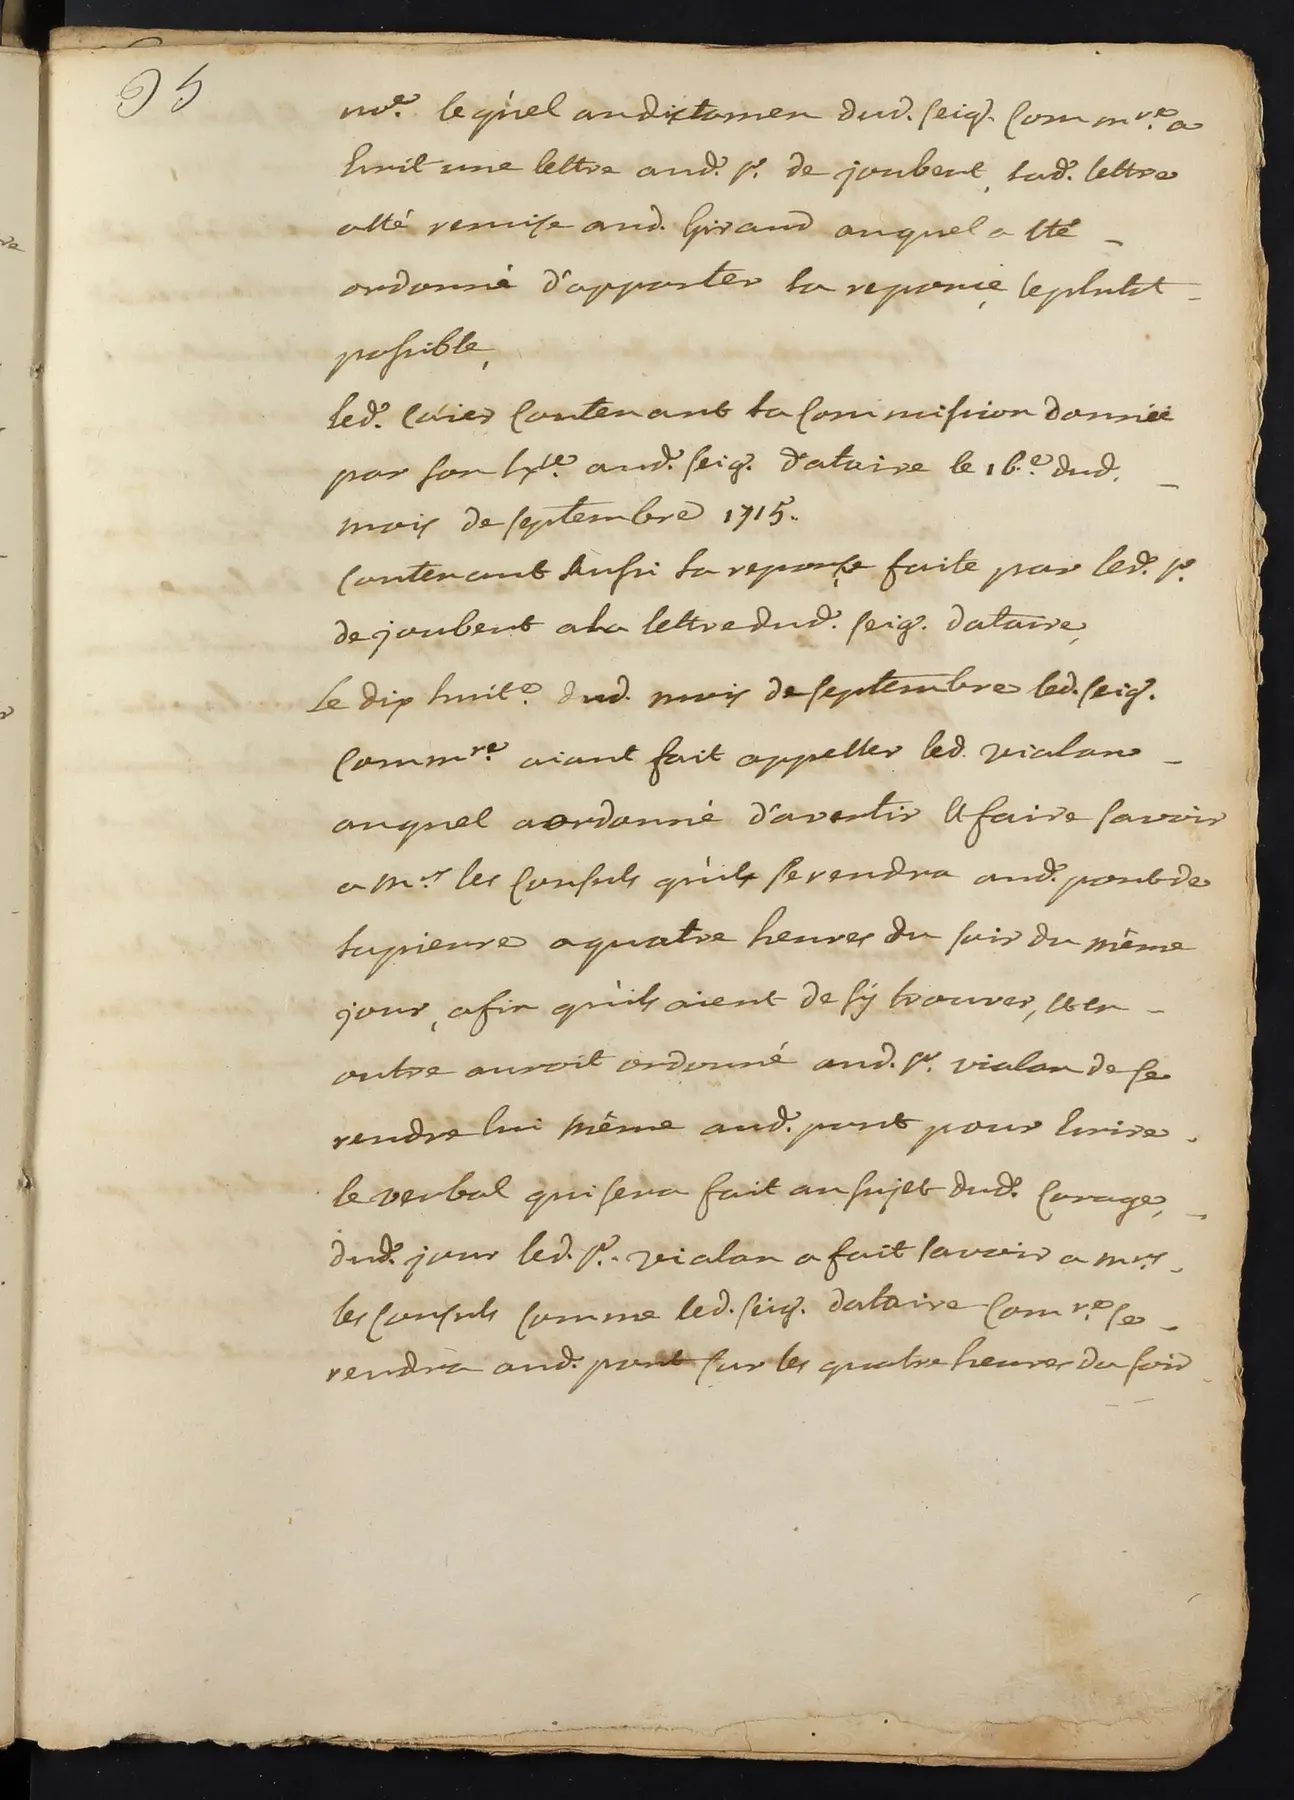 95
no.e lequel au dictamen dud. seig.r Comm.re a
Ecrit une lettre aud.t s.r de joubert, lad.e lettre
a été remise aud. Giraud auquel a été
ordonné d'apporter la reponce le plutot
possible,
led.t Caier Contenant la Commission donnée
par son Ex.ce aud.t seig.r dataire le 16.e dud.
mois de septembre 1715.
Contenant Aussi la reponse faite par led.t s.r
de joubert a la lettre dud.t seig.r dataire,
Le dix huit.e dud. mois de septembre led. seig.r
Comm.re aiant fait appeller led. vialan
auquel a ordonné d'avertir Et faire savoir
a m.rs les Consuls quils se rendra aud.t pont de
la pierre a quatre heures du soir du même
jour, afin qu'ils aient de s'y trouver, et en
outre auroit ordonné aud. s.r vialan de se
rendre lui même aud.t pont pour Ecrire
le verbal qui sera fait au sujet dud.t Corage,
dud.t jour led. s.r vialan a fait savoir a m.rs
les Consuls Comme led. seig.r dataire Com.re se
rendra aud.t pont sur les quatre heures du soir